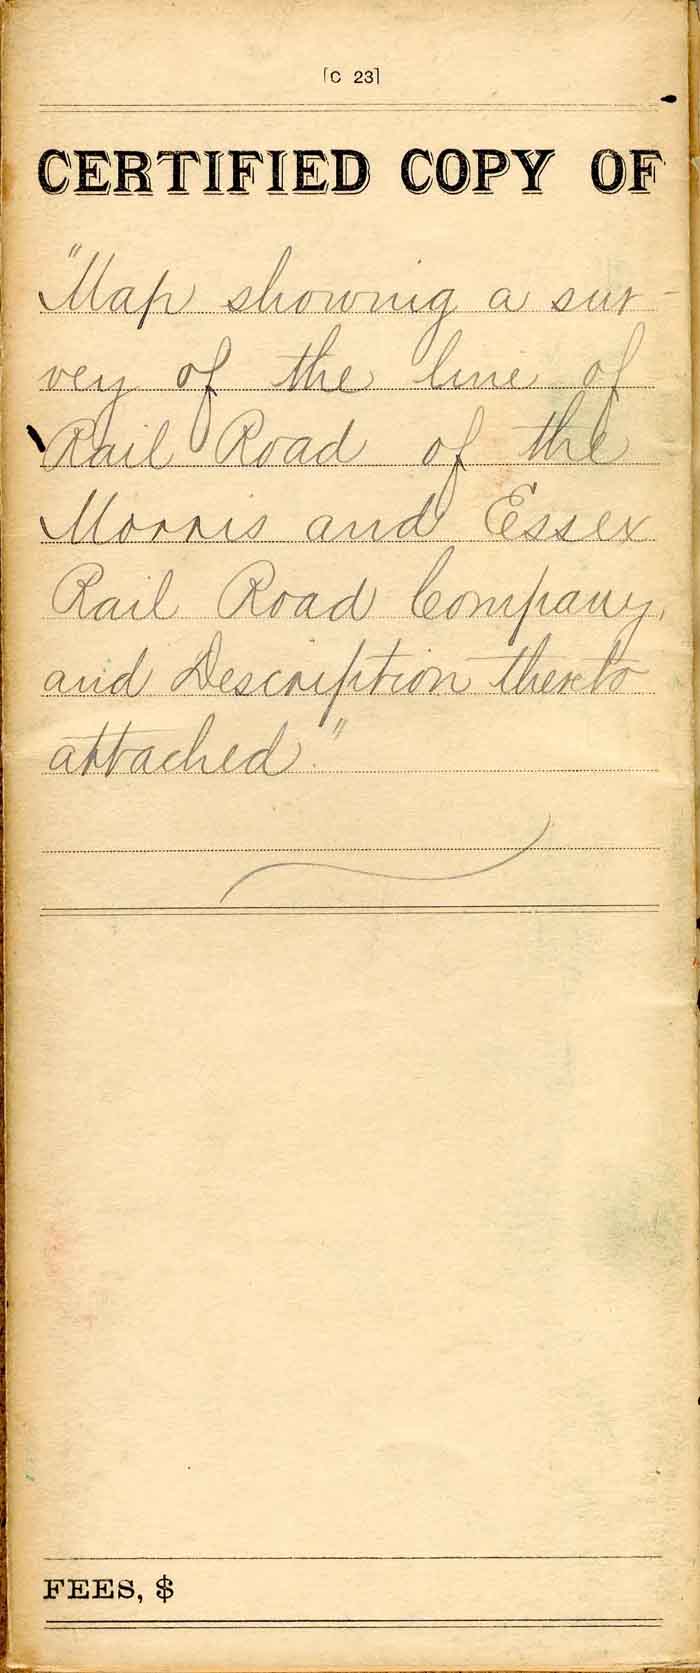 [C 23]
CERTIFIED COPY OF
"Map showing a sur-
vey of the line of
Rail Road of the
Morris and Essex
Rail Road Company,
and Description thereto
attached."
FEES, $